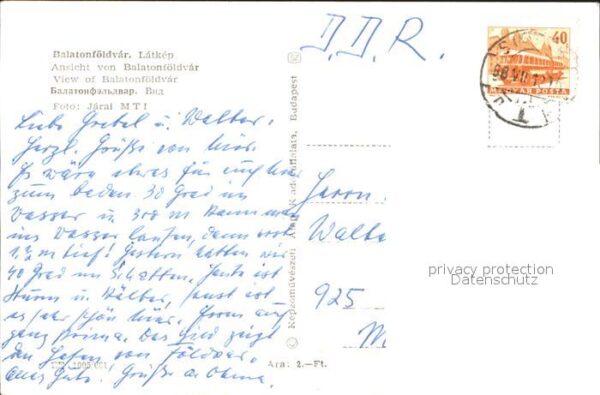 Balatonföldvár. Látkép
Ansicht von Balatonföldvár
View of Balatonföldvár
Балатонфэльдвар. Вид
Foto: Járai M T I
Herzl. Grüße von hier.
Es wäre etwas für euch hier
zum baden 30 Grad im
Wasser u. 300 m kann man
ins Wasser laufen, dann erst
tief! Gestern hatten wir
40 Grad im Schatten. Heute ist
Sturm u. kälter, sonst ist
es sehr schön hier.
ganz prima. Das Bild zeigt
den Hafen von Földvar.
Alles Gute. Grüße a. Oma.
Ara: 2.-Ft.
Képzőművészeti Alap Kiadóvállalata, Budapest
D. D. R.
40
MAGYAR POSTA
Herrn
Walte
925
privacy protection
Datenschutz